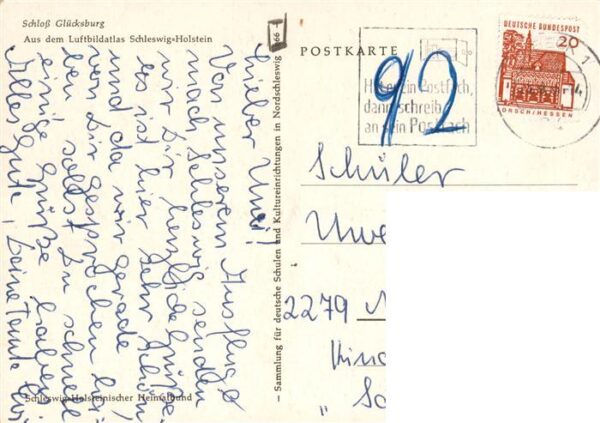 Schloß Glücksburg
Aus dem Luftbildatlas Schleswig-Holstein
Lieber Uwe!
Von unserem Ausfluge
nach Schleswig senden
wir Dir herzliche Grüße.
es ist hier sehr schön
und da wir gerade
von Dir gesprochen ha-
ben sollst Du schnell
einige Grüße haben.
Alles Gute, Deine Tante
Schleswig-Holsteinischer Heimatbund
— Sammlung für deutsche Schulen und Kultureinrichtungen in Nordschleswig
66 T
POSTKARTE
92
Haben Sie ein Postfach,
dann schreib
an sein Postfach
DEUTSCHE BUNDESPOST
20
LORSCH/HESSEN
Schüler
Uwe
2279 N
Kind
„ Sc